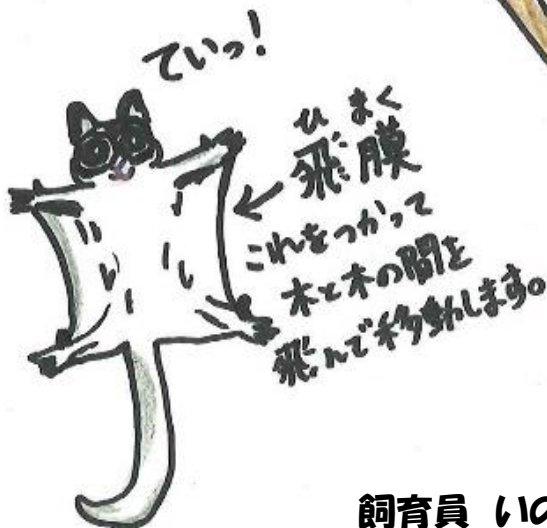 ていっ!
ひまく
飛膜
これをつかって
木と木の間を
飛んで移動します。
飼育員 いの